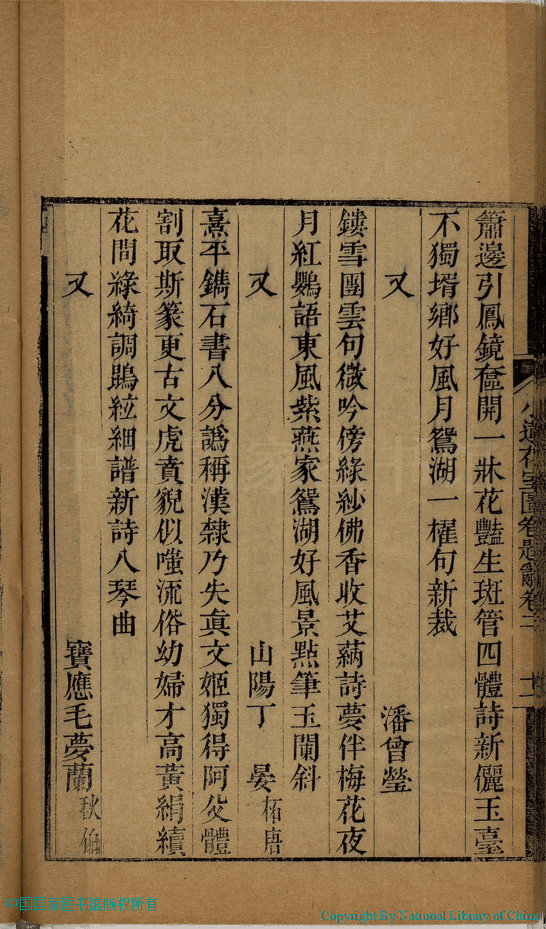 簫邊引鳳鏡奩開一牀花豔生斑管四體詩新儷玉臺
不獨壻鄉好風月鴛湖一櫂句新裁
又
潘曾瑩
鏤雪團雲句微吟傍綠紗佛香收艾蒳詩夢伴梅花夜
月紅鸚語東風紫燕家鴛湖好風景㸃筆玉闌斜
又
山陽丁晏柘唐
熹平鐫石書八分譌稱漢隸乃失眞文姬獨得阿父體
割取斯篆更古文虎賁貌似嗤流俗幼婦才高黃絹續
花間綠綺調鵾絃細譜新詩八琴曲
又
寶應毛夢蘭秋伯
小蓮花室圖卷題辭卷三
十一
中国国家图书馆版权所有
Copyright By National Library of China